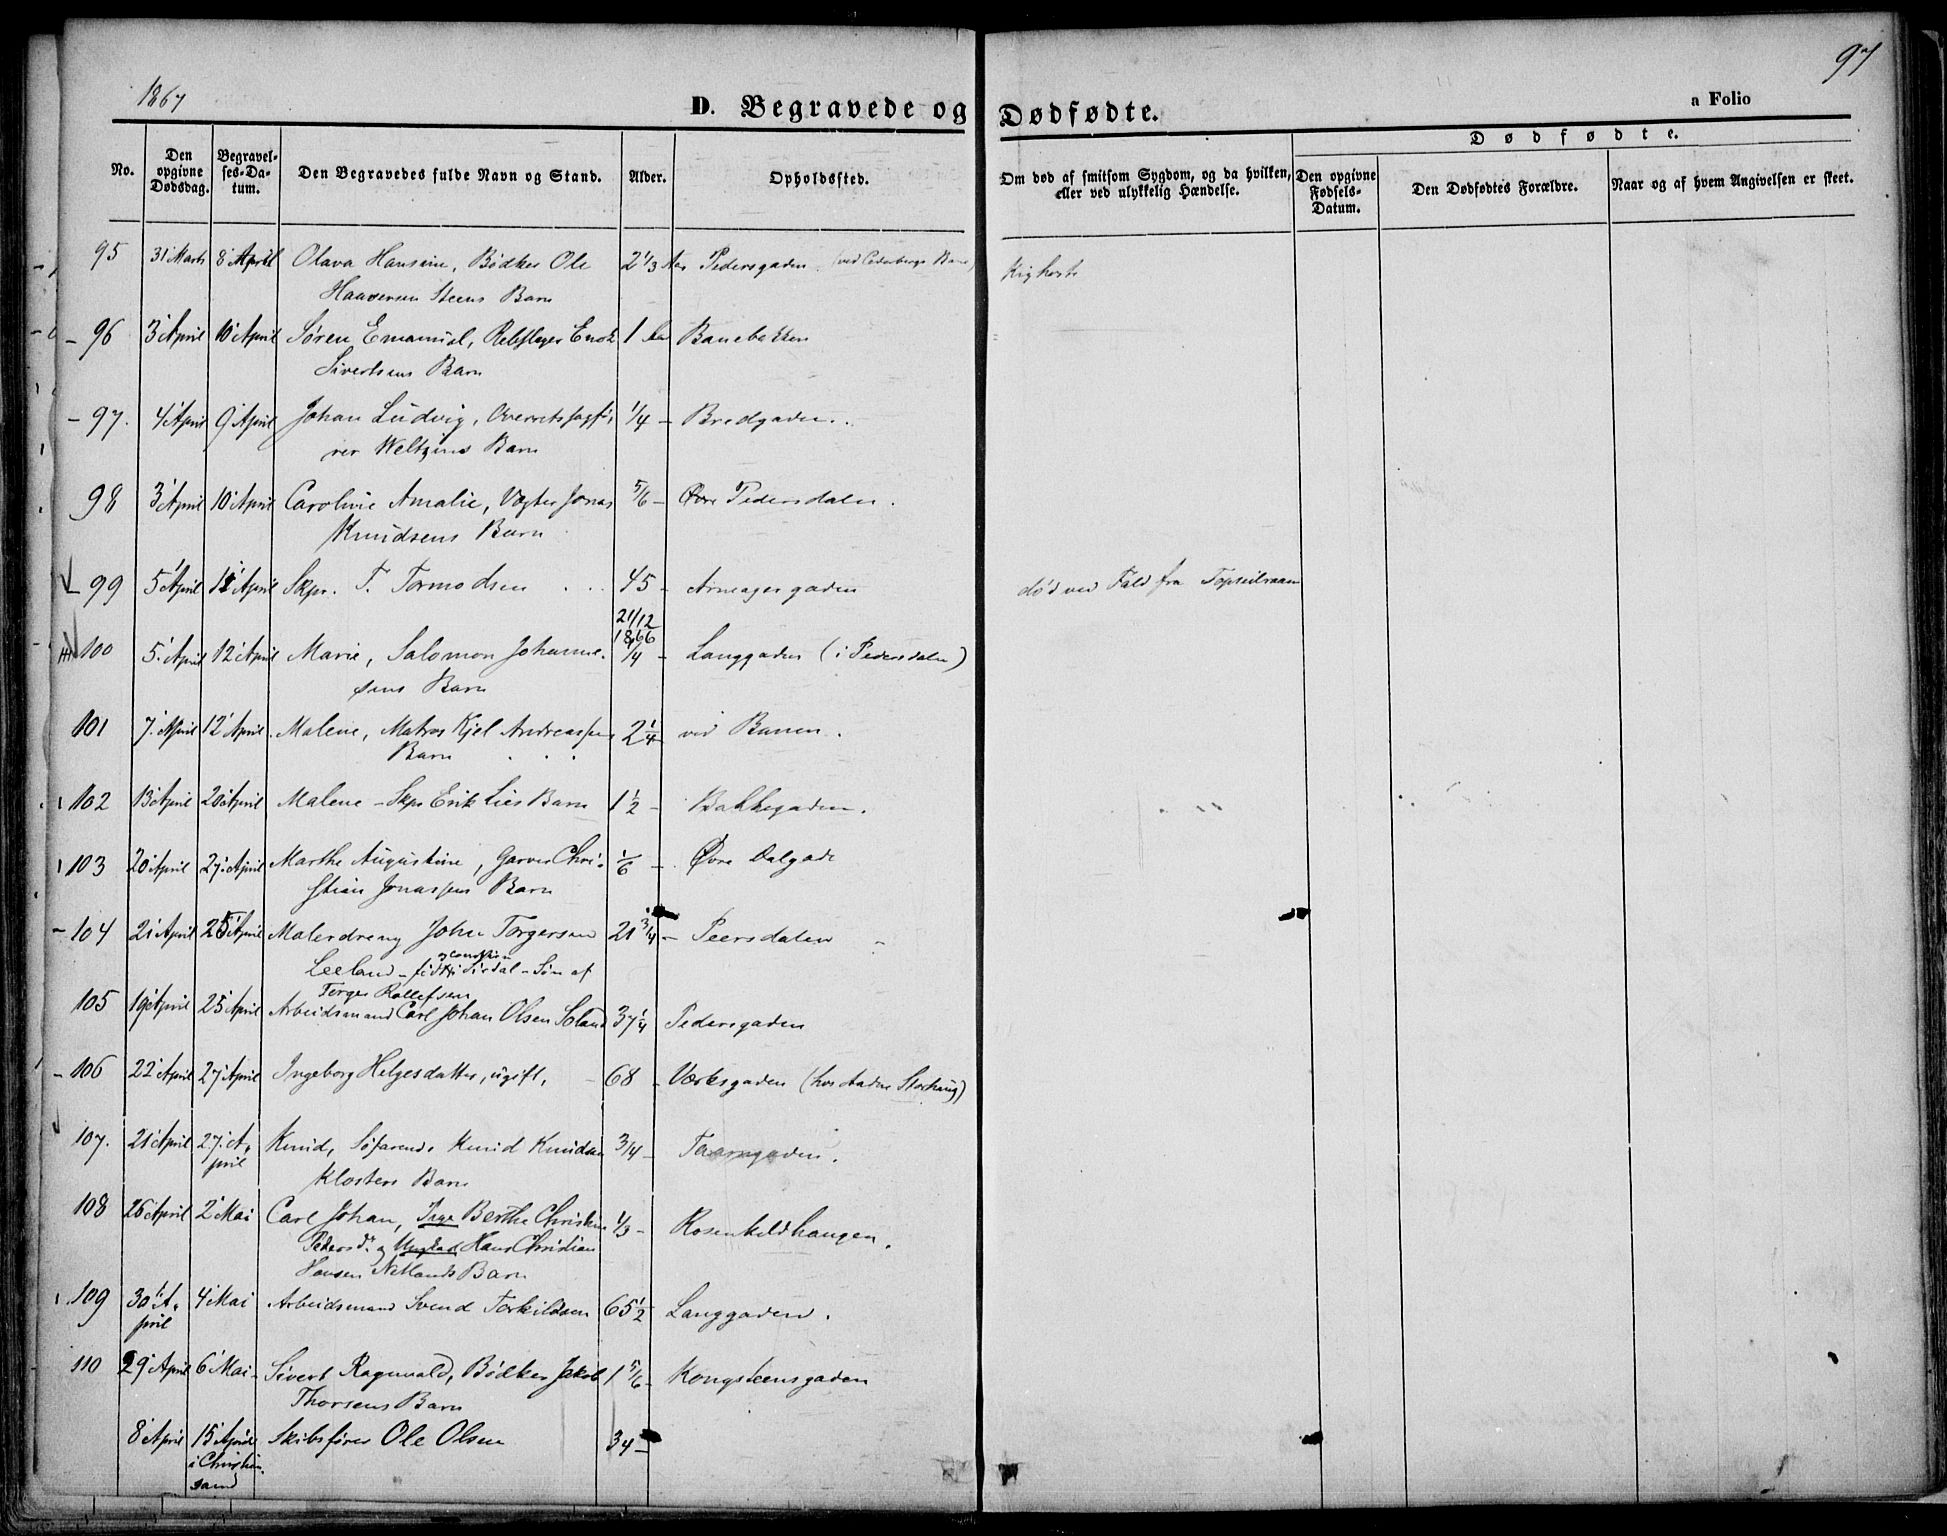 1867
97
D. Begravede og Dødfødte.
a Folio
No.
Den opgivne Dødsdag.
Begravelses-Datum.
Den Begravedes fulde Navn og Stand.
Alder.
Opholdssted.
Om død af smitsom Sygdom, og da hvilken, eller ved ulykkelig Hændelse.
Dødfødte.
Den opgivne Fødsels-Datum.
Den Dødfødtes Forældre.
Naar og af hvem Angivelsen er skeet.
95 31 Marts 8 April Olava Hansine, Bødker Ole 2 1/3 Aar Pedersgaden. (ved Cederbergs Bane) Kighoste
Haaversen Steens Barn
- 96 3 April 10 April Søren Emanuel, Rebslager Enok 1 Aar Banebakken
Sivertsens Barn
- 97. 4 April 9 April Johan Ludvig, Overretssagfø- 1/4 - Bredgaden.
rer Weltzins Barn
98 3 April 10 April Caroline Amalie, Vægter Jonas 5/6 - Øvre Pedersdalen.
Knudsens Barn
99 5 April 11 April Skpr. T. Tormodsen 45 - Armagergaden død ved Fald fra Topseilraaen
21/12
1866
100 5. April 12 April Marie, Salomon Johanne- 1/4 - Langgaden (i Pedersdalen)
sens Barn
101 7. April 12 April. Malene, Matros Kjel Andreassens 2 1/4 ved Banen.
Barn
102 13 April 20 April Malene - Skpr Erik Lies Barn 1 1/2 - Bakkegaden.
103 20 April 27. April Marthe Augustine, Garver Chri- 1/6 - Øvre Dalgade
stian Jonassens Barn
- 104 21 April 25 April Malerdreng John Torgersen 21 3/4 - Peersdalen
Leeland - født i Sirdal - Søn af
Torger Rollefsen
105 19 April 25 April Arbeidsmand Carl Johan Olsen Soland 37 1/4 Pedersgaden
- 106 22 April 27 April Ingeborg Helgesdatter, ugift, - 68 - Værksgaden (hos Aadne Storhaug)
107. 21 April 27. A-
pril Knud, Søfarende Knud Knudsen 3/4 - Taarngaden.
Klosters Barn
108 26 April 2 Mai Carl Johan, Pige Berthe Christine 1/3 - Rosenkildhaugen.
Pedersdr. og Ungkarl Hans Christian
Hansen Netlands Barn
109 30 A-
pril 4 Mai Arbeidsmand Svend Torkildsen 65 1/2 Langgaden.
110 29 April 6 Mai Sivert Ragnvald, Bødker Jakob 1 5/6 - Kongsteensgaden
Thorsens Barn
8 April 15 April Skibsfører Ole Olsen 34 -
i Christian-
sand